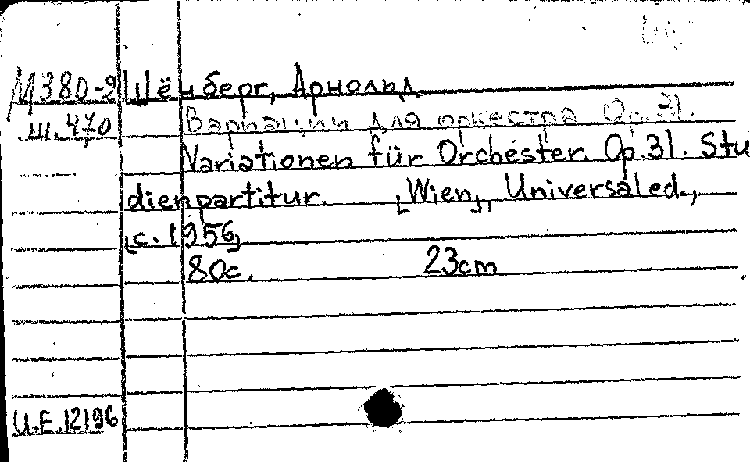 М380-2 Шёнберг, Арнольд
Ш.470 Вариации для оркестра Op.31.
Variationen für Orchester. Op.31. Stu
dienpartitur. [Wien], Universal ed.,
[c. 1956]
80с. 23cm
U.E.12196